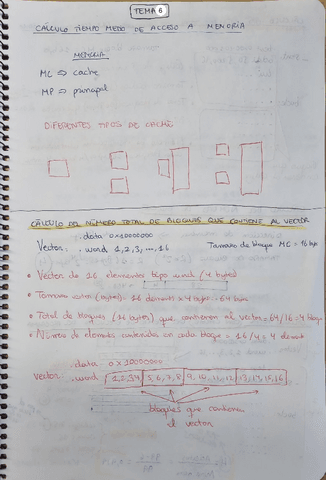 TEMA 6
CÁLCULO TIEMPO MEDIO DE ACCESO A MEMORIA
MEMORIA
MC => cache
MP => principal
DIFERENTES TIPOS DE CACHÉ
CÁLCULO DEL NÚMERO TOTAL DE BLOQUES QUE CONTIENE AL VECTOR
.data 0x10000000
Vector: .word 1,2,3,...,16
Tamaño de bloque MC = 16 byte
• Vector de 16 elementos tipo word (4 bytes)
• Tamaño vector (bytes): 16 elements x 4 bytes = 64 bytes
• Total de bloques (16 bytes) que contienen al vector = 64/16 = 4 bloques
• Número de elementos contenidos en cada bloque = 16/4 = 4 element
.data 0x10000000
vector: .word 1,2,3,4 5,6,7,8 9,10,11,12 13,14,15,16
bloques que contienen
el vector